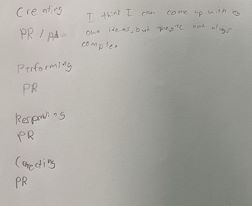 Creating
I think I can come up with
PR / 
own ideas, but not always
complex
Performing
PR
Responding
PR
Connecting
PR